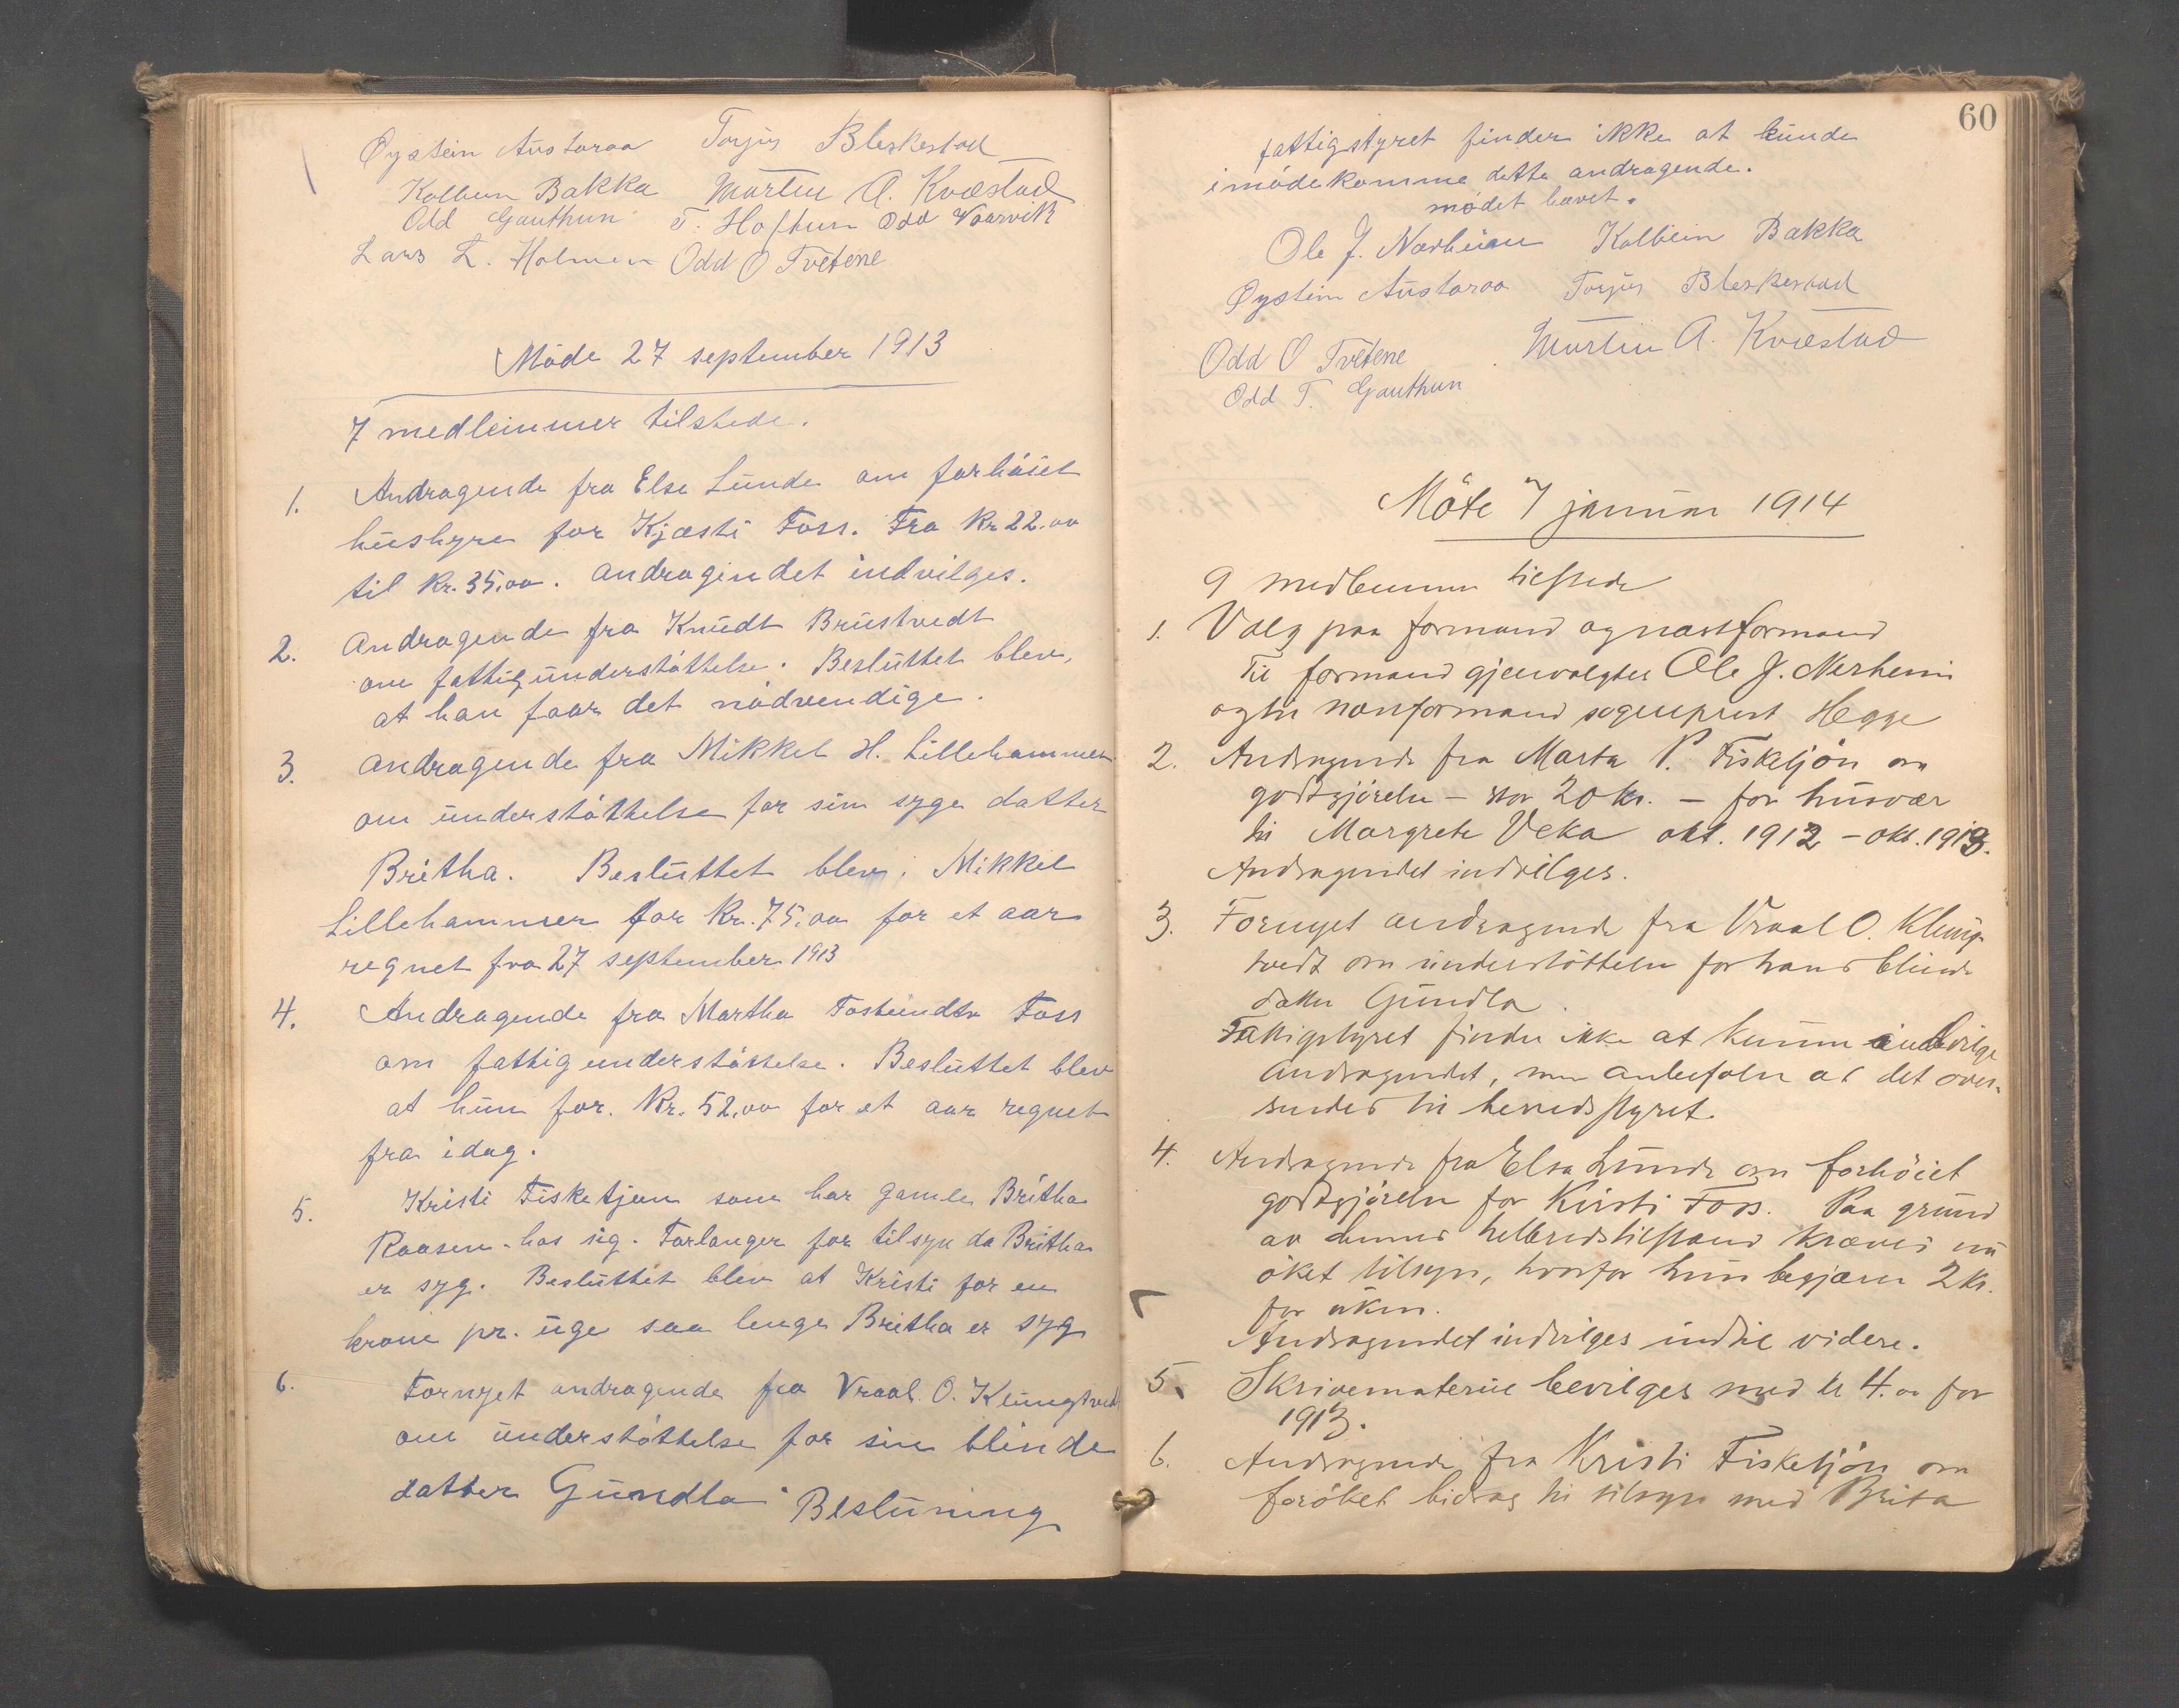 Øystein Austaraa Torjus Bleskestad
Kolbein Bakka Martin A. Kvæstad
Odd Gauthun T. Hoftun Odd Vaarvik
Lars L. Holmen Odd O Tvetene
Møde 27 september 1913
7 medlemmer tilstede.
1. Andragende fra Else Lunde om forhøiet
hushyre for Kjæsti Foss. Fra kr 22.00
til kr. 35,00. Andragendet indvilges.
2. Andragende fra Knudt Brustvedt
om fattigunderstøttelse. Besluttet blev,
at han faar det nødvendige.
3. Andragende fra Mikkel H. Lillehammer
om understøttelse for sin syge datter
Britha. Besluttet blev. Mikkel
Lillehammer for kr. 75,00 for et aar
regnet fra 27 september 1913
4. Andragende fra Martha Foss
om fattigunderstøttelse. Besluttet blev
at hun for. kr. 52,00 for et aar regnet
fra idag.
5. Kristi Fisketjøn som har gamle Britha
Raasen hos sig. Forlanger for tilsyn da Britha
er syg. Besluttet blev at Kristi for en
krone pr. uge saa lenge Britha er syg
6. Fornyet andragende fra Vraal O. Klungtvedt
om understøttelse for sin blinde
datter Gundla Beslutning
60
fattigstyret finder ikke at kunde
imødekomme dette andragende.
mødet hævet.
Ole J. Nærheim Kolbein Bakka
Øystein Austaraa Torjus Bleskestad
Odd O Tvetene Martin A. Kvæstad
Odd T. Gauthun
Møte 7 januar 1914
9 medlemmer tilstede
1. Valg paa formand og næstformand
Til formand gjenvalgtes Ole J. Nerheim
og til næstformand sogneprest Hegge
2. Andragende fra Marta P. Fisketjøn om
godtgjørelse – stor 20 kr. – for husvær
til Margrete Veka okt. 1912 – okt. 1913.
Andragendet indvilges.
3. Fornyet andragende fra Vraal O. Klung-
tvedt om understøttelse for hans blinde
datter Gundla.
Fattigstyret finder ikke at kunne indvilge
andragendet, men anbefaler at det over-
sendes til herredsstyret.
4. Andragende fra Elsa Lunde om forhøiet
godtgjørelse for Kirsti Foss. Paa grund
av hennes helbredstilstand kræves nu
øket tilsyn, hvorfor hun begjærer 2 kr.
for uken.
Andragendet indvilges indtil videre.
5. Skrivemateriel bevilges med kr 4.00 for
1913.
6. Andragende fra Kristi Fisketjøn om
forøket bidrag til tilsyn med Brita